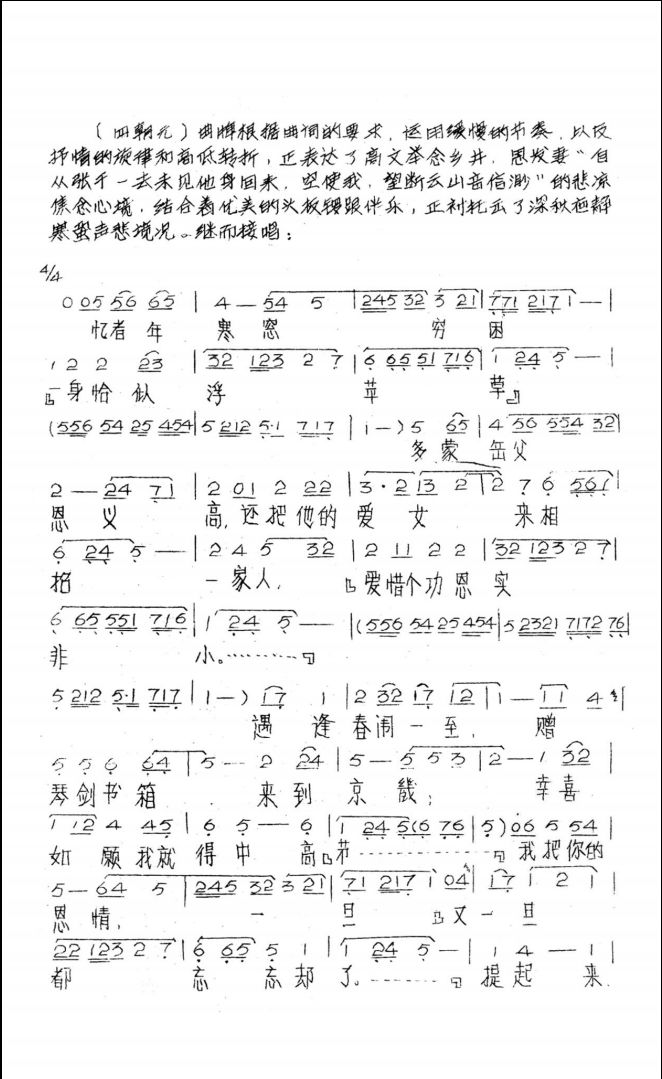 （四朝元）曲牌根据曲词的要求，运用缓慢的节奏，以反
抒情的旋律和高低转折，正表达了高文举念乡井，思发妻“自
从张千一去未见他身回来，空使我，望断云山音信渺”的悲凉
焦念心境，结合着优美的头板慢跟伴乐，正衬托出了深秋夜静
寒蛩声悲境况。继而接唱：
4/4
0 05 56 65 | 4 — 54 5 | 245 32 3 21 | 771 217 1 — |
忆昔年 寒窓 穷 困
1 2 2 23 | 32 123 2 7 | 6 65 51 716 | 1 24 5 — |
一身恰似 浮 苹 草
(556 54 25 454 | 5 212 5·1 717 | 1 — ) 5 65 | 4 56 554 32 |
多蒙 岳父
2 — 24 71 | 2 01 2 22 | 3·2 13 2 | 2 7 6 561 |
恩 义 高，还把他的 爱 女 来相
6 24 5 — | 2 4 5 32 | 2 11 2 2 | 32 123 2 7 |
招 一家人， 爱惜个功恩 实
6 65 551 716 | 1 24 5 — | (556 54 25 454 | 5 2321 7172 76 |
非 小。
5 212 5·1 717 | 1 — ) 17 1 | 2 32 17 12 | 1 — 11 4 |
遇 逢 春闱 一 至， 赠
5 5 6 64 | 5 — 2 24 | 5 — 5 5 3 | 2 — 1 32 |
琴剑书箱 来到 京 畿； 幸喜
1 12 4 45 | 6 5 — 6 | 1 24 5 (6 76 | 5 ) 06 5 54 |
如 愿我就 得中 高 节 我把你的
5 — 64 5 | 245 32 3 21 | 71 217 1 04 | 17 1 2 1 |
恩情， 一 旦 又一旦
22 123 2 7 | 6 65 5 1 | 1 24 5 — | 1 4 — 1 |
都 忘 忘却 了。 提起 来